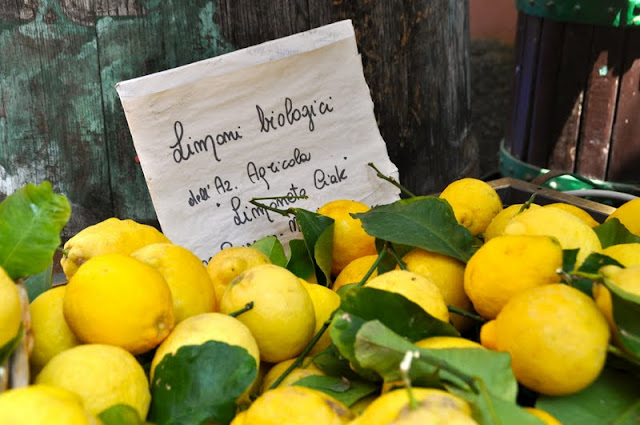 Limoni biologici
dell'Az. Agricola
Limoneto Ciak